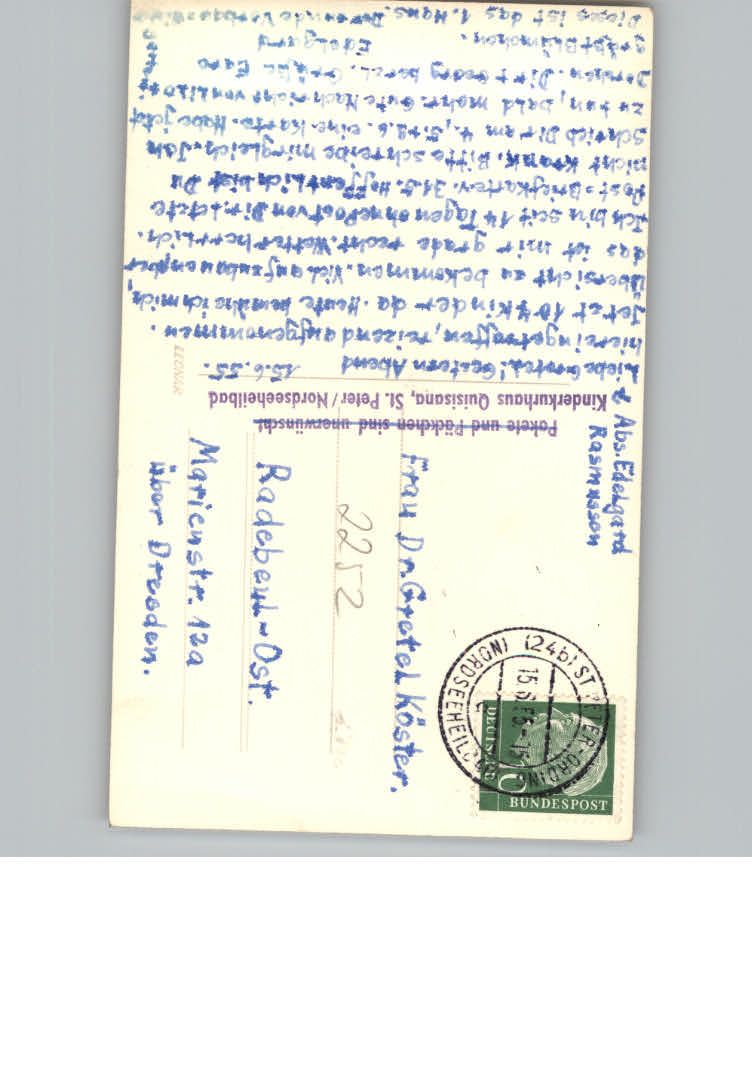 Abs. Edelgard
Rasmusson
Pakete und Päckchen sind unerwünscht
Kinderkurhaus Quisisana, St. Peter/Nordseeheilbad
Liebe Gretel! Gestern Abend 15.6.55.
hier eingetroffen, reizend aufgenommen.
Jetzt Kinder da. Heute bemühe ich mich,
Übersicht zu bekommen. Viel aufzubauen, aber
das ist mir grade recht. Wetter herrlich.
Ich bin seit 14 Tagen ohne Post von Dir. Letzte
Post: Briefkarte v. 31.5. Hoffentlich bist Du
nicht krank. Bitte schreibe mir gleich. Ich
schrieb Dir am eine Karte. Habe jetzt
zu tun, bald mehr. Gute Nachricht von
Dorchen. Dir + Georg herzl. Grüße Eure
Edelgard
grüßt Blümchen.
Dieses ist das 1. Haus. Der runde
LEONAR
Frau Dr. Gretel Köster.
2252
Radebeul-Ost.
Marienstr. 12a
über Dresden.
(24b) ST. PETER-ORDING
(NORDSEEHEILBAD)
15.6.55-15
DEUTSCHE
BUNDESPOST
10